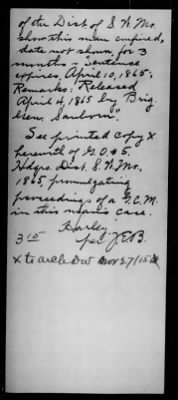 of the Dist. of S. W. Mo.
show this man confined,
date not shown for 3
months – "Sentence
expires, April 10, 1865;
Remarks: Released
April 4, 1865 by Brig.
Gen. Sanborn".
See printed copy x
herewith of G.O. #5,
Hdqrs. Dist. S. W. Mo.,
1865, promulgating
proceedings of a G.C.M.
in this man's case.
per J.E.B.
315
Nov 27/15